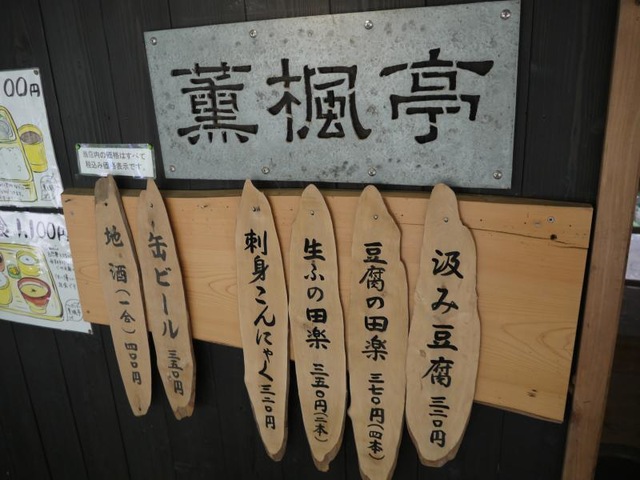 薫楓亭
当店内の価格はすべて
税込み価格表示です。
00円
1,100円
汲み豆腐 三二〇円
豆腐の田楽 三七〇円(四本)
生ふの田楽 三五〇円(二本)
刺身こんにゃく 三二〇円
缶ビール 三五〇円
地酒(一合) 四〇〇円